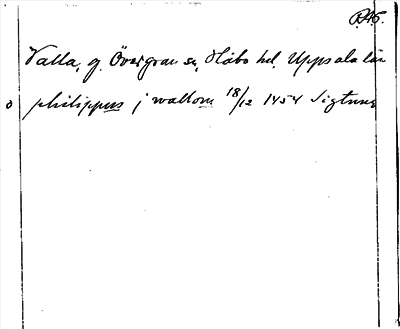 RA6.
Valla, g. Övergran sn, Håbo hd. Uppsala län
o philippus j wallom 18/12 1454 Sigtuna